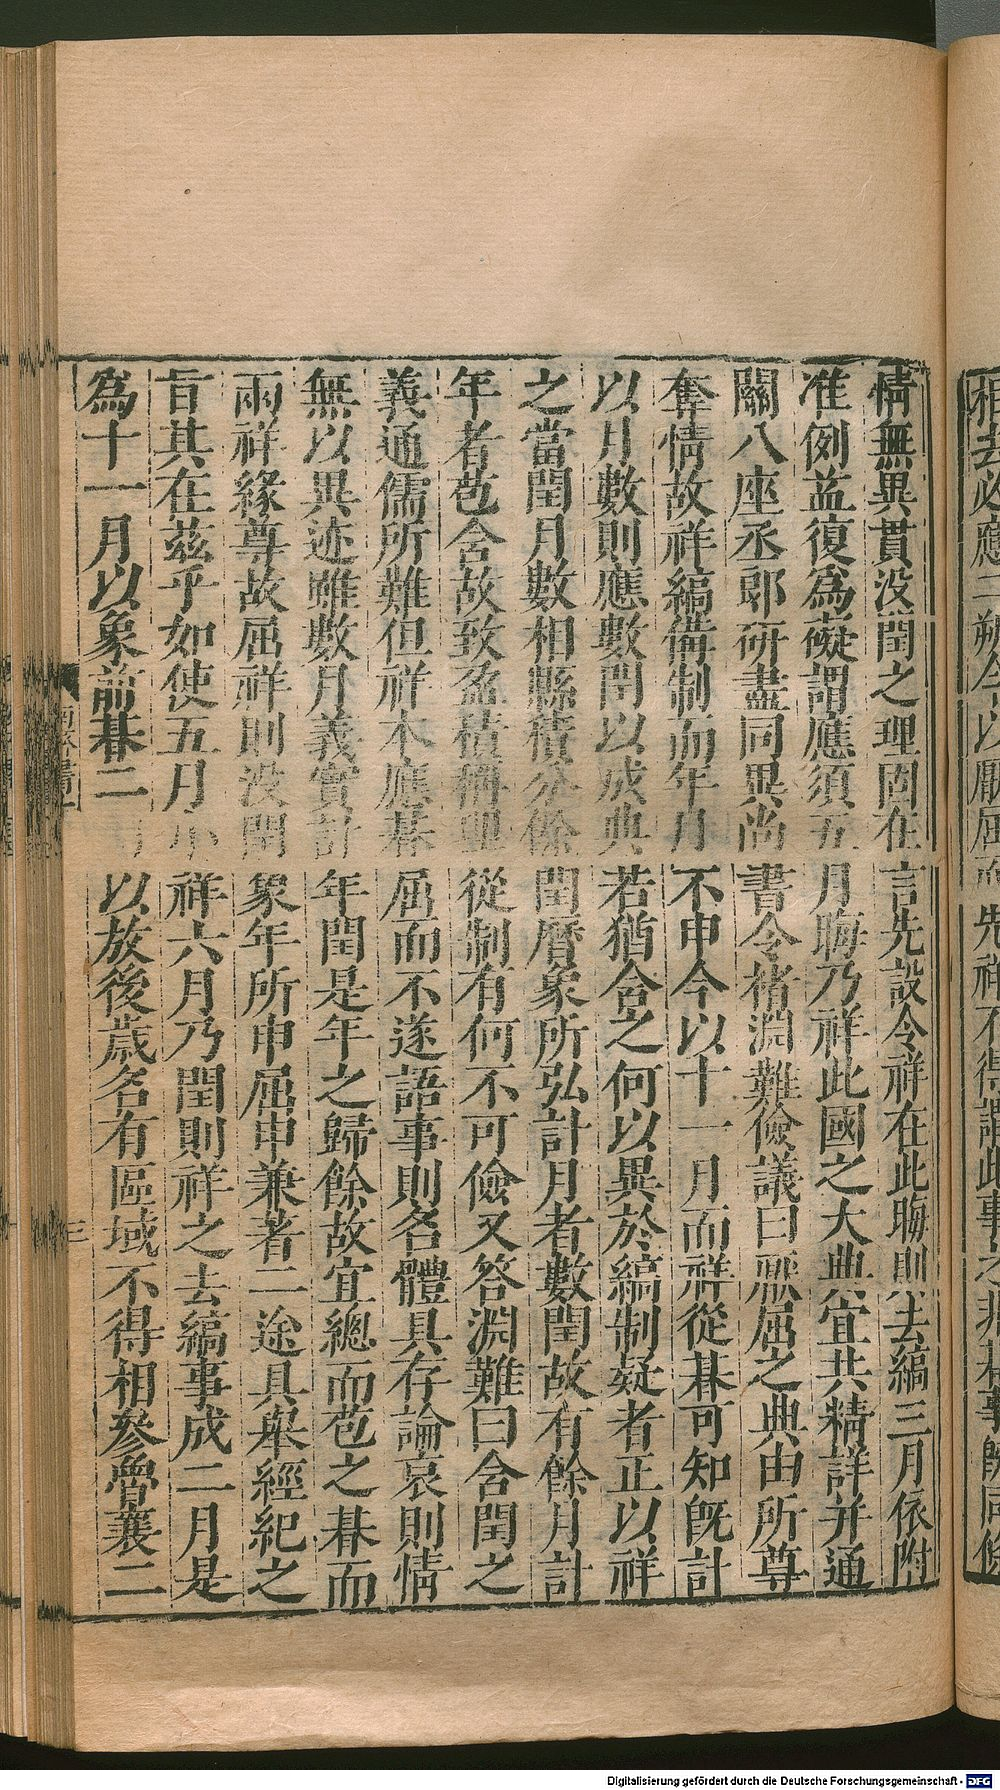 相去必應二朔今以厭屈而先祥不得謂此事之非朞事旣同條
情無異貫没閏之理固在言先設令祥在此晦則去縞三月依附
准例益復為礙謂應須五月晦乃祥此國之大典宜共精詳并通
關八座丞郎研盡同異尚書令褚淵難儉議曰厭屈之典由所尊
奪情故祥縞備制而年月不申今以十一月而祥從朞可知旣計
以月數則應數閏以成典若猶含之何以異於縞制疑者正以祥
之當閏月數相縣積分餘閏曆象所弘計月者數閏故有餘月計
年者苞含故致盈積稱理從制有何不可儉又答淵難曰含閏之
義通儒所難但祥本應朞屈而不遂語事則名體具存論哀則情
無以異迹雖數月義實計年閏是年之歸餘故宜總而苞之朞而
兩祥緣尊故屈祥則没閏象年所申屈申兼著二途具舉經紀之
旨其在茲乎如使五月小祥六月乃閏則祥之去縞事成二月是
為十一月以象前朞二月以放後歲名有區域不得相參魯襄二
Digitalisierung gefördert durch die Deutsche Forschungsgemeinschaft - DFG